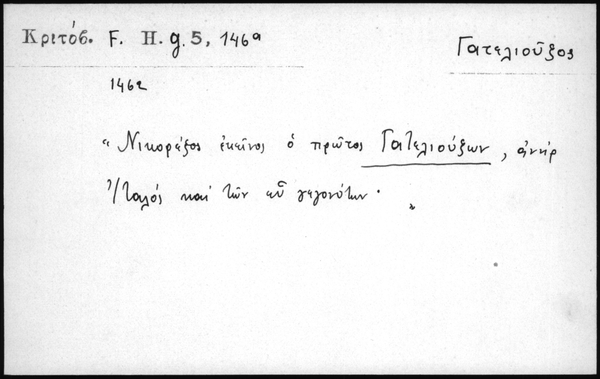 Κριτόβ. F. H. g. 5, 146a
Γατελιοῦξος
1462
"Νικορέζος ἐκεῖνος ὁ πρῶτος Γατελιούξων, ἀνὴρ
Ἰταλός καὶ τῶν εὖ γεγονότων· "